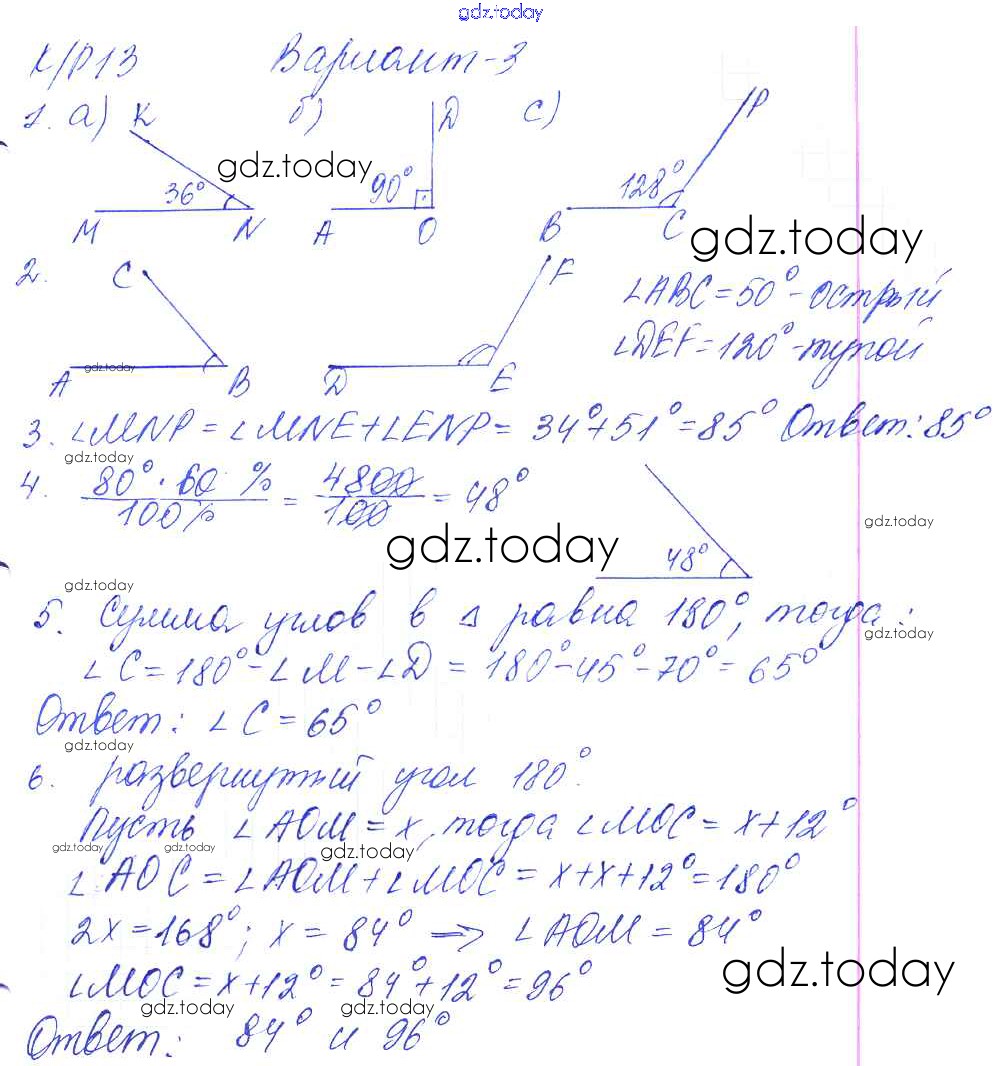 gdz.today
К/Р13 Вариант-3
1. а) K б) D с) P
gdz.today
36° 90° 128°
M N A O B C
gdz.today
2. C F ∠ABC=50°-острый
∠DEF=120°-тупой
A gdz.today B D E
3. ∠MNP = ∠MNE+∠ENP= 34°+51°=85° Ответ: 85°
gdz.today
4. 80°·60 % / 100% = 4800 / 100 = 48°
gdz.today
gdz.today
48°
gdz.today
5. Сумма углов в △ равна 180°, тогда:
gdz.today
∠C=180°-∠M-∠D = 180°-45°-70°= 65°
Ответ: ∠C=65°
gdz.today
6. развернутый угол 180°.
Пусть ∠AOM=x, тогда ∠MOC= x+12°
gdz.today gdz.today gdz.today
∠AOC=∠AOM+∠MOC= x+x+12°=180°
2x=168°; x= 84° => ∠AOM = 84°
gdz.today
∠MOC= x+12°= 84°+12°=96°
gdz.today gdz.today
Ответ: 84° и 96°